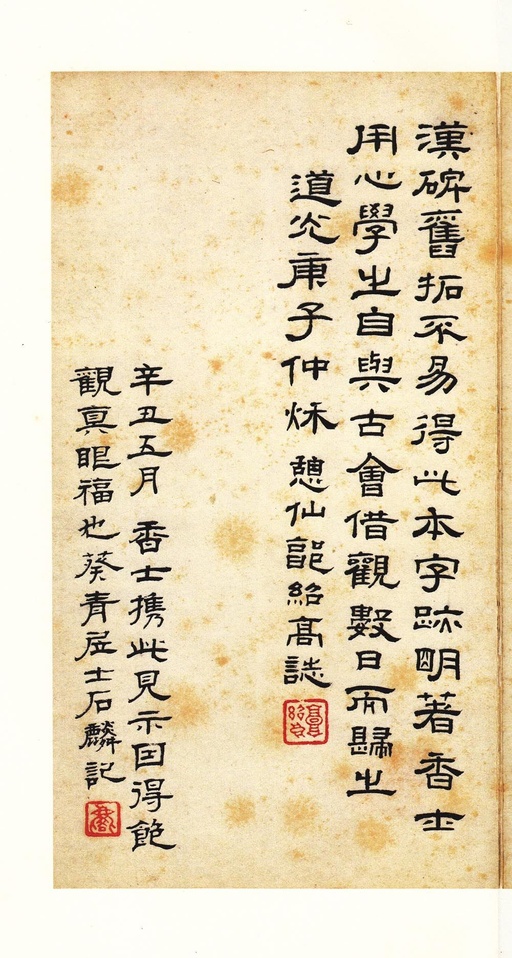 漢碑舊拓不易得此本字跡明著香士
用心學之自與古會借觀數日而歸之
道光庚子仲秌 憩仙郭紹高誌
辛丑五月 香士携此見示因得飽
觀真眼福也葵青居士石麟記